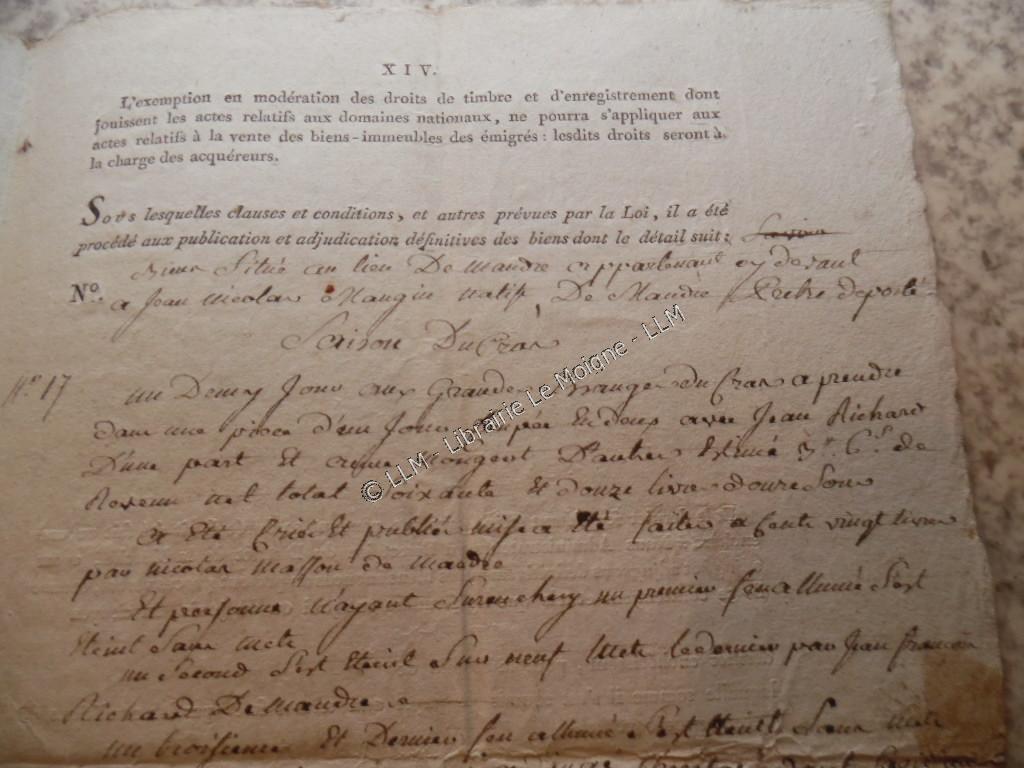 XIV.
L'exemption en modération des droits de timbre et d'enregistrement dont
jouissent les actes relatifs aux domaines nationaux, ne pourra s'appliquer aux
actes relatifs à la vente des biens-immeubles des émigrés : lesdits droits seront à
la charge des acquéreurs.
Sous lesquelles clauses et conditions, et autres prévues par la Loi, il a été
procédé aux publication et adjudication définitives des biens dont le détail suit :
Situé au lieu De Mandre appartenant cy devant
N°. a Jean Nicolas Mangin natif De Mandre Pretre deporté
Saison Du Cras
N° 17 un Demy Jour aux Grandes du Cras a prendre
dans une piece d'un Jour en deux avec Jean Richard
D'une part Et D'autre Estimé de
Revenu net total Soixante Et douze livres douze Sous
a Eté Criée Et publiée mise a Eté faite a Cent vingt livres
par nicolas masson de mandre
Et personne n'ayant Surenchery un premier feu allumé S'est
Eteint Sans mete
un Second S'est Eteint Sur neuf mete le dernier par Jean francois
Richard De mandre
un troisieme Et Dernier feu allumé S'est Eteint Sans mete
© LLM - Librairie Le Moigne - LLM